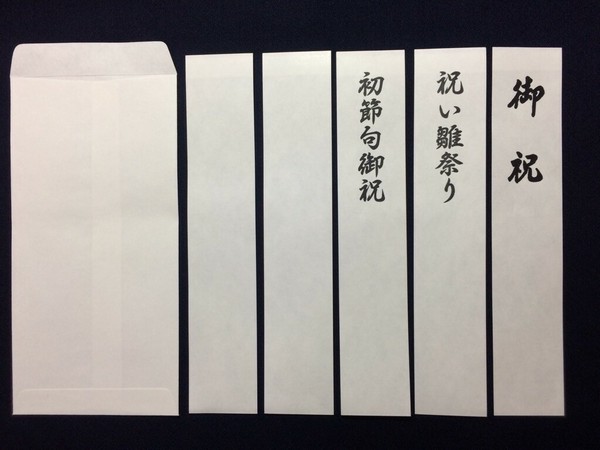 御祝
祝い雛祭り
初節句御祝